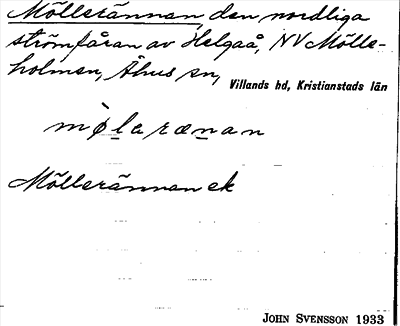 Möllerännan, den nordliga
strömfåran av Helgaå, NV Mölle-
holmen, Åhus sn,
Villands hd, Kristianstads län
møla rænan
Möllerännan ek
JOHN SVENSSON 1933